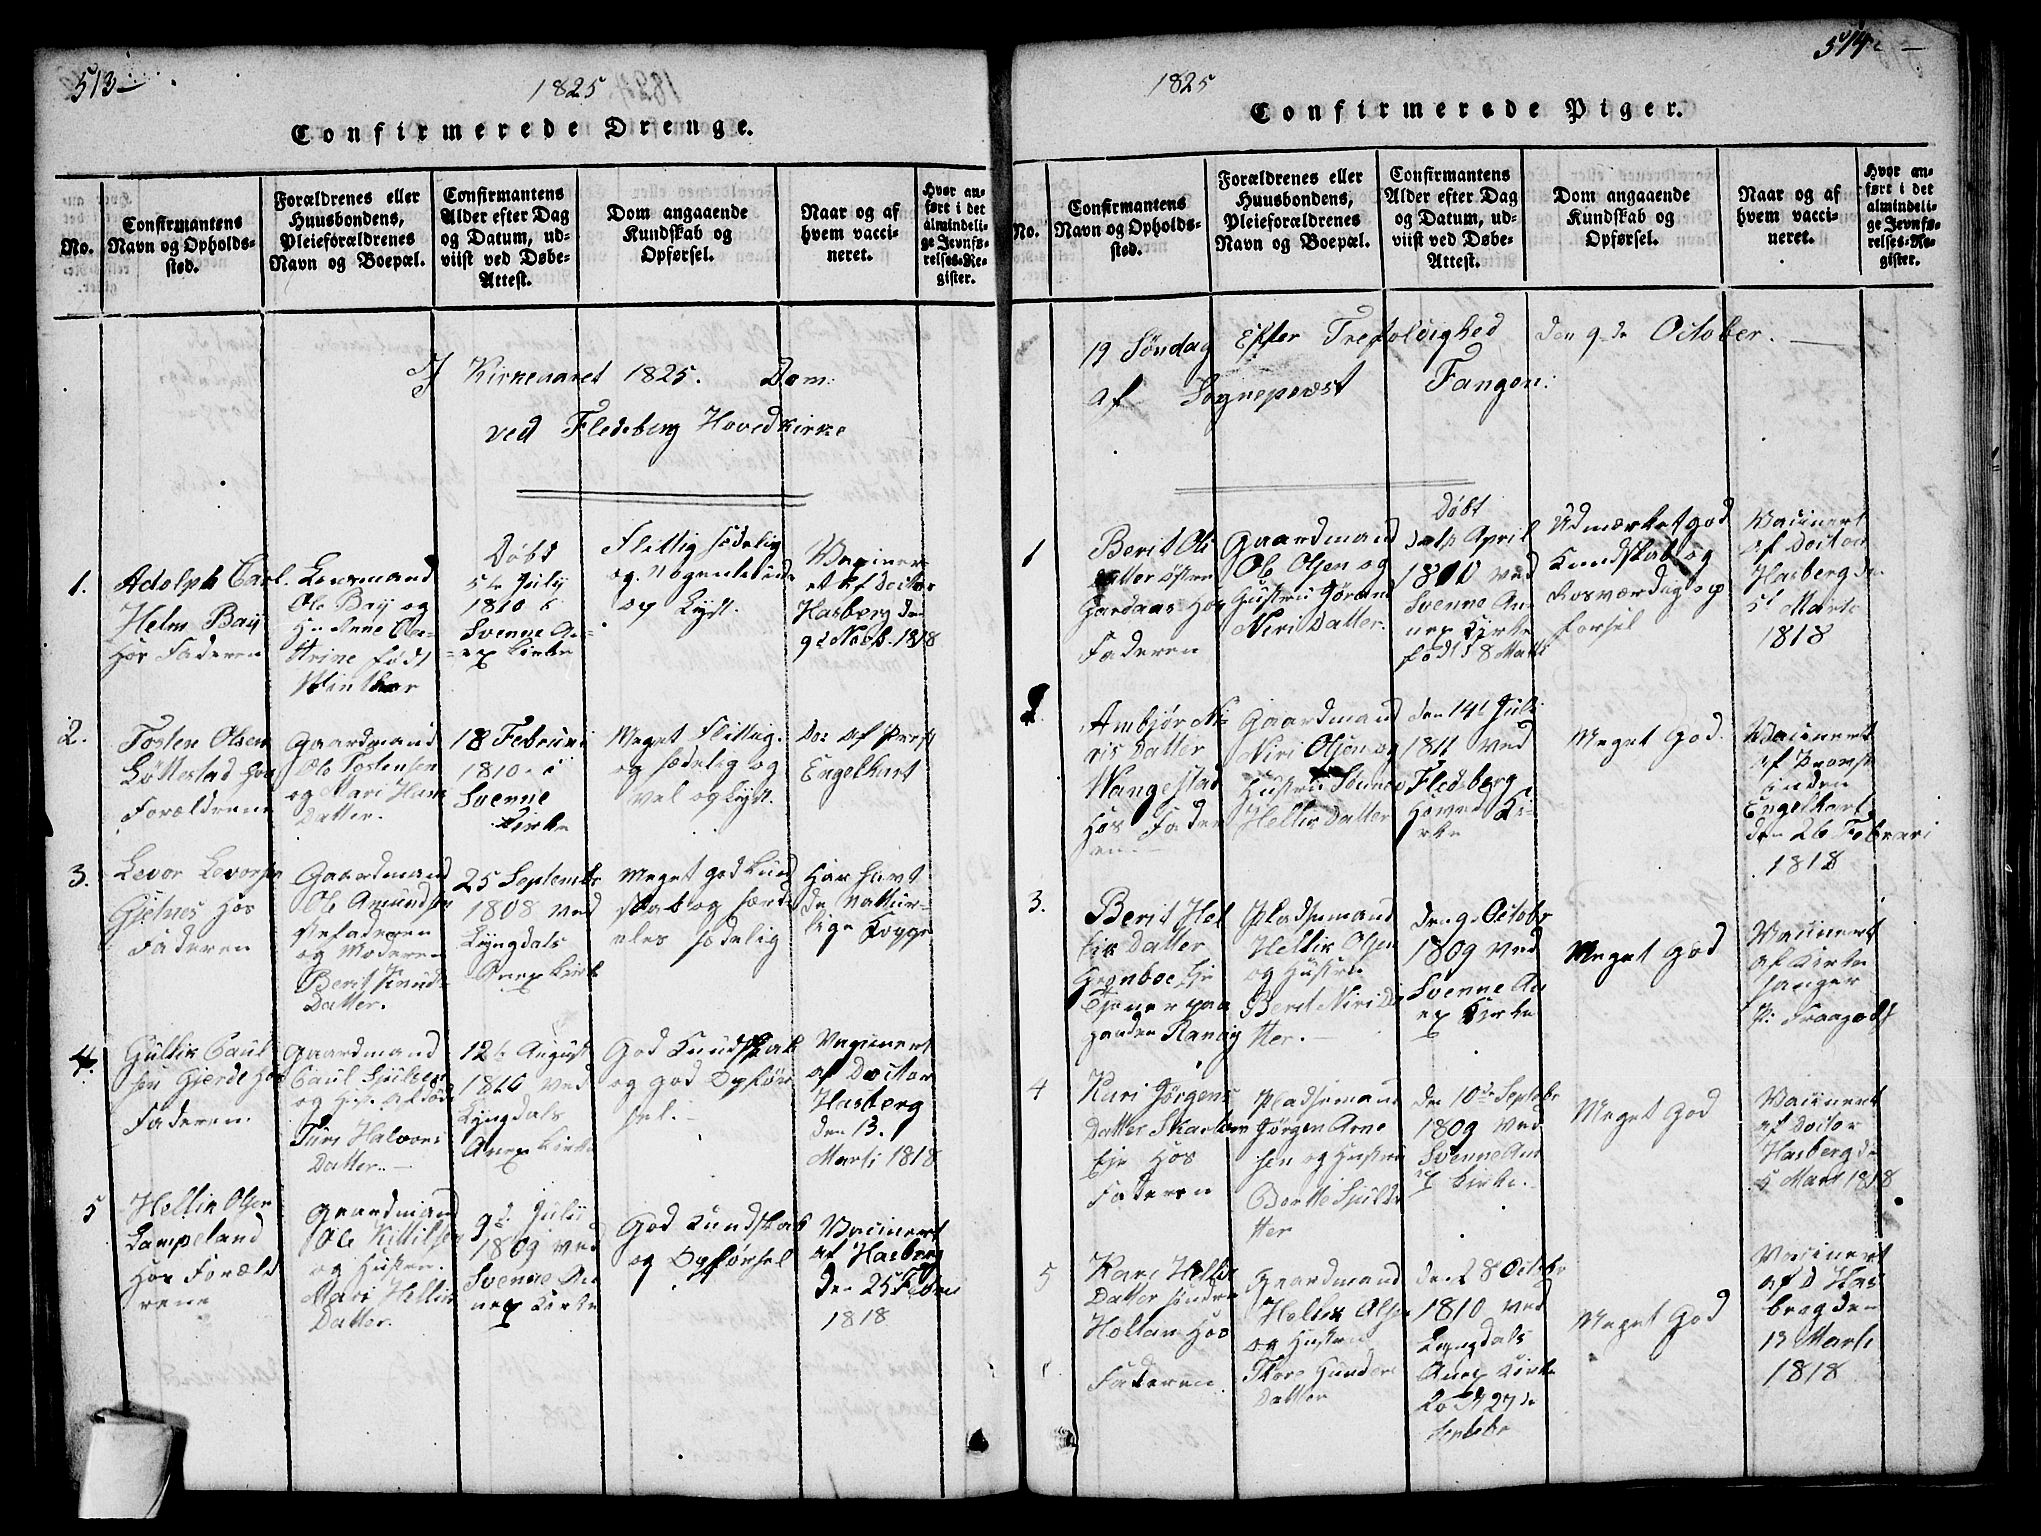 513
1825
Confirmerede Drenge.
No.
Confirmantens
Navn og Opholds-
sted.
Forældrenes eller
Huusbondens,
Pleieforældrenes
Navn og Boepæl.
Confirmantens
Alder efter Dag
og Datum, ud-
viist ved Døbe-
Attest.
Dom angaaende
Kundskab og
Opførsel.
Naar og af
hvem vacci-
neret.
Hvor an-
ført i det
almindeli-
ge Jevnfø-
relses-Re-
gister.
I Kirkeaaret 1825. Dom:
ved Fledsberg Hovedkirke
1.
Adolph Carl
Helm Bay
Hos Faderen
Lensmand
Ole Bay og
Hu: Anne Ca-
trine født
Winther
Døbt
5te July
1810 i
Svenne An-
ex Kirke
Flittig sødelig
og nogenlunde
op Lyst.
Vaciner-
et af Doctor
Hasberg den
9d Novb. 1818
2.
Tosten Olsen
Løttestad hos
Forældrene
Gaardmand
Ole Tostensen
og Mari Hans
Datter.
18 Februari
1810 i
Svenne
Kirke
Meget Flittig
og sødelig og
Vel oplyst.
Do: af Prost
Engelhart
3.
Levor Levorsen
Gjelnes Hos
Faderen
Gaardmand
Ole Amundsen
Stefaderen
og Moderen
Berit Knuds
Datter.
25 Septembr
1808 ved
Lyngdals
Anex Kirke
Meget god Kund
skab og særde
eles sødelig
Har havt
de Nattur-
lige Kopper
4.
Gullik Paul
sen Gjerde Hos
Faderen.
Gaardmand
Paul Spilsen
Turi Halvors
Datter.
12te August
1810 ved
Lyngdals
Anex Kirke
God Kundskab
og god Opfør
sel.
Vacinert
af Doctor
Hasberg
den 13.
Marti 1818
5
Hellik Olsen
Lampeland
Hos Foræld
rene
Gaardmand
Ole Kittilsen
og Hustru.
Mari Hellik
Datter.
9d Julii
1809 ved
Svenne An
nex Kirke
God Kundskab
og Opførsel
Vacinert
af Hasberg
den 25 Febru
1818
514
1825
Confirmerede Piger.
No.
Confirmantens
Navn og Opholds-
sted.
Forældrenes eller
Huusbondens,
Pleieforældrenes
Navn og Boepæl.
Confirmantens
Alder efter Dag
og Datum, ud-
viist ved Døbe-
Attest.
Dom angaaende
Kundskab og
Opførsel.
Naar og af
hvem vacci-
neret.
Hvor an-
ført i det
almindeli-
ge Jevnfø-
relses-Re-
gister.
19 Søndag Efter Trefoldighed den 9de October.
af Sogneprest Fangen:
1
Berit Ols
Datter østre
Gardaas Hos
Faderen
Gaardmand
Ole Olsen og
Hustru Jørand
Niri Datter.
Døbt
April
1810 ved
Svenne An
nex Kirke
født 8 Marti
Udmærket god
Kundskab og
Rosværdig op
forsel
Vacinert
af Doctor
Hasberg den
5t Marti
1818
2
Ambjør Ni-
ris Datter
Wangestad
Hos Fader
en
Gaardmand
Niri Olsen og
Hustru
Hellik Datter
den 14t Juli
1811 ved
Fledsberg
Hoved Ki-
rke
Meget God
Vacinert
af Provst
Engelhart
den 26 Februari
1818
3.
Berit Hel
lik Datter
Grønboe Eje
Tjener paa
Garden Ranvig
Pladsemand
Hellik Olsen
og Hustru
Berit Niri Da
tter.
den 9de Octobr
1809 ved
Svenne An
ex Kirke
Meget God
Vacinert
af Kirke
sanger
P: Fraagodt
4
Kari Jørgens
Datter Skartum
Eje Hos
Faderen
Pladsemand
Jørgen Arne
sen og Hustru
Dorthe Spilds
tter
den 10de Septebr
1809 ved
Svenne An
ex Kirke.
Meget God
Vacinert
af Doctor
Hasberg den
5 Mart 1818
5
Kari Hellik
Datter søndre
Holtan Hos
Faderen.
Gaardmand
Hellik Olsen
og Hustru
Thore Gunder
Datter
den 28 Octobr
1810 ved
Lyngdals
Anex Kirke
Fød 27de
Septebr
Meget God
Vacinert
af D Has
brog den
13 Marti
1818